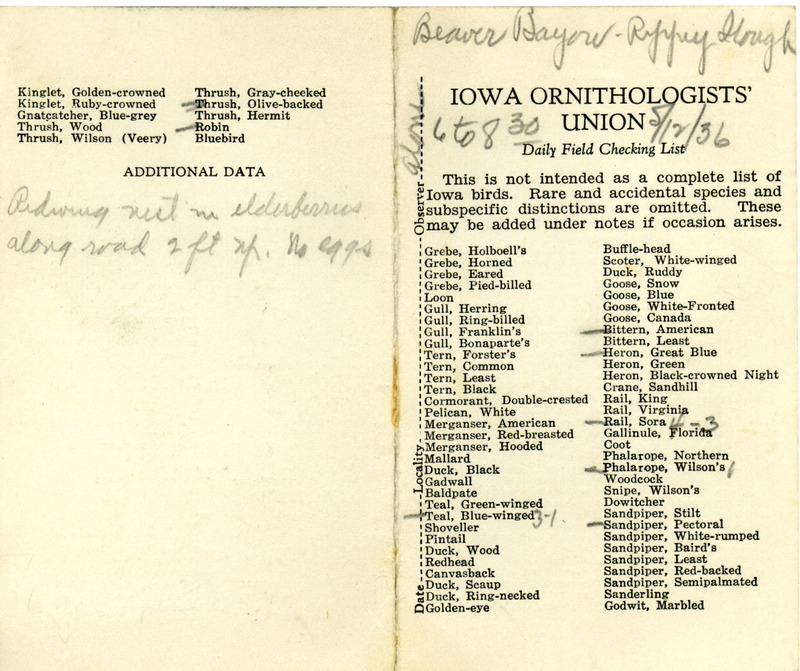 Kinglet, Golden-crowned
Kinglet, Ruby-crowned
Gnatcatcher, Blue-grey
Thrush, Wood
Thrush, Wilson (Veery)
Thrush, Gray-cheeked
Thrush, Olive-backed
Thrush, Hermit
Robin
Bluebird
ADDITIONAL DATA
Redwing nest in elderberries
along road 2 ft up. No eggs
Beaver Bayou - Rippey Slough
IOWA ORNITHOLOGISTS'
UNION 5/12/36
6 to 8 30
Daily Field Checking List
This is not intended as a complete list of
Iowa birds. Rare and accidental species and
subspecific distinctions are omitted. These
may be added under notes if occasion arises.
Date Locality Observer Alone
Grebe, Holboell's
Grebe, Horned
Grebe, Eared
Grebe, Pied-billed
Loon
Gull, Herring
Gull, Ring-billed
Gull, Franklin's
Gull, Bonaparte's
Tern, Forster's
Tern, Common
Tern, Least
Tern, Black
Cormorant, Double-crested
Pelican, White
Merganser, American
Merganser, Red-breasted
Merganser, Hooded
Mallard
Duck, Black
Gadwall
Baldpate
Teal, Green-winged
Teal, Blue-winged 3-1
Shoveller
Pintail
Duck, Wood
Redhead
Canvasback
Duck, Scaup
Duck, Ring-necked
Golden-eye
Buffle-head
Scoter, White-winged
Duck, Ruddy
Goose, Snow
Goose, Blue
Goose, White-Fronted
Goose, Canada
Bittern, American
Bittern, Least
Heron, Great Blue
Heron, Green
Heron, Black-crowned Night
Crane, Sandhill
Rail, King
Rail, Virginia
Rail, Sora 4-3
Gallinule, Florida
Coot
Phalarope, Northern
Phalarope, Wilson's 1
Woodcock
Snipe, Wilson's
Dowitcher
Sandpiper, Stilt
Sandpiper, Pectoral
Sandpiper, White-rumped
Sandpiper, Baird's
Sandpiper, Least
Sandpiper, Red-backed
Sandpiper, Semipalmated
Sanderling
Godwit, Marbled